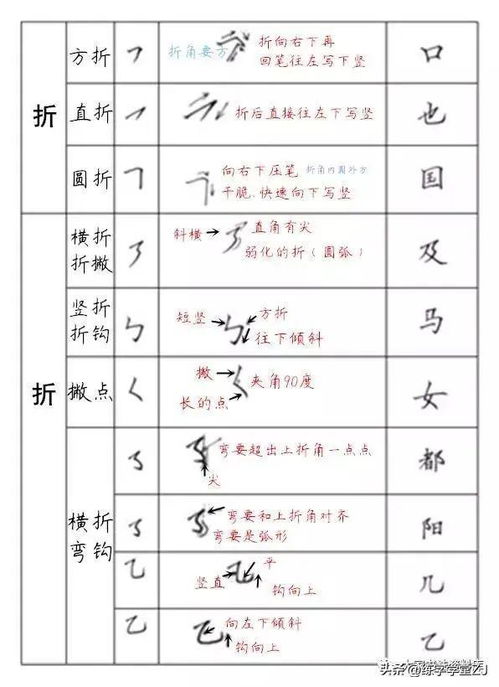 方折
折角要方
折向右下再
回笔往左写下竖
口
折
直折
折后直接往左下写竖
也
圆折
向右下压笔 折角内圆外方
干脆,快速向下写竖
国
横折
折撇
斜横
直角有尖
弱化的折(圆弧)
及
竖折
折钩
短竖
方折
往下倾斜
马
折
撇点
撇
长的点
夹角90度
女
弯要超出上折角一点点
尖
都
横折
弯钩
弯要和上折角对齐
弯要是弧形
阳
竖直
平
钩向上
几
向左下倾斜
钩向上
乙
头条@练字字量ZJ